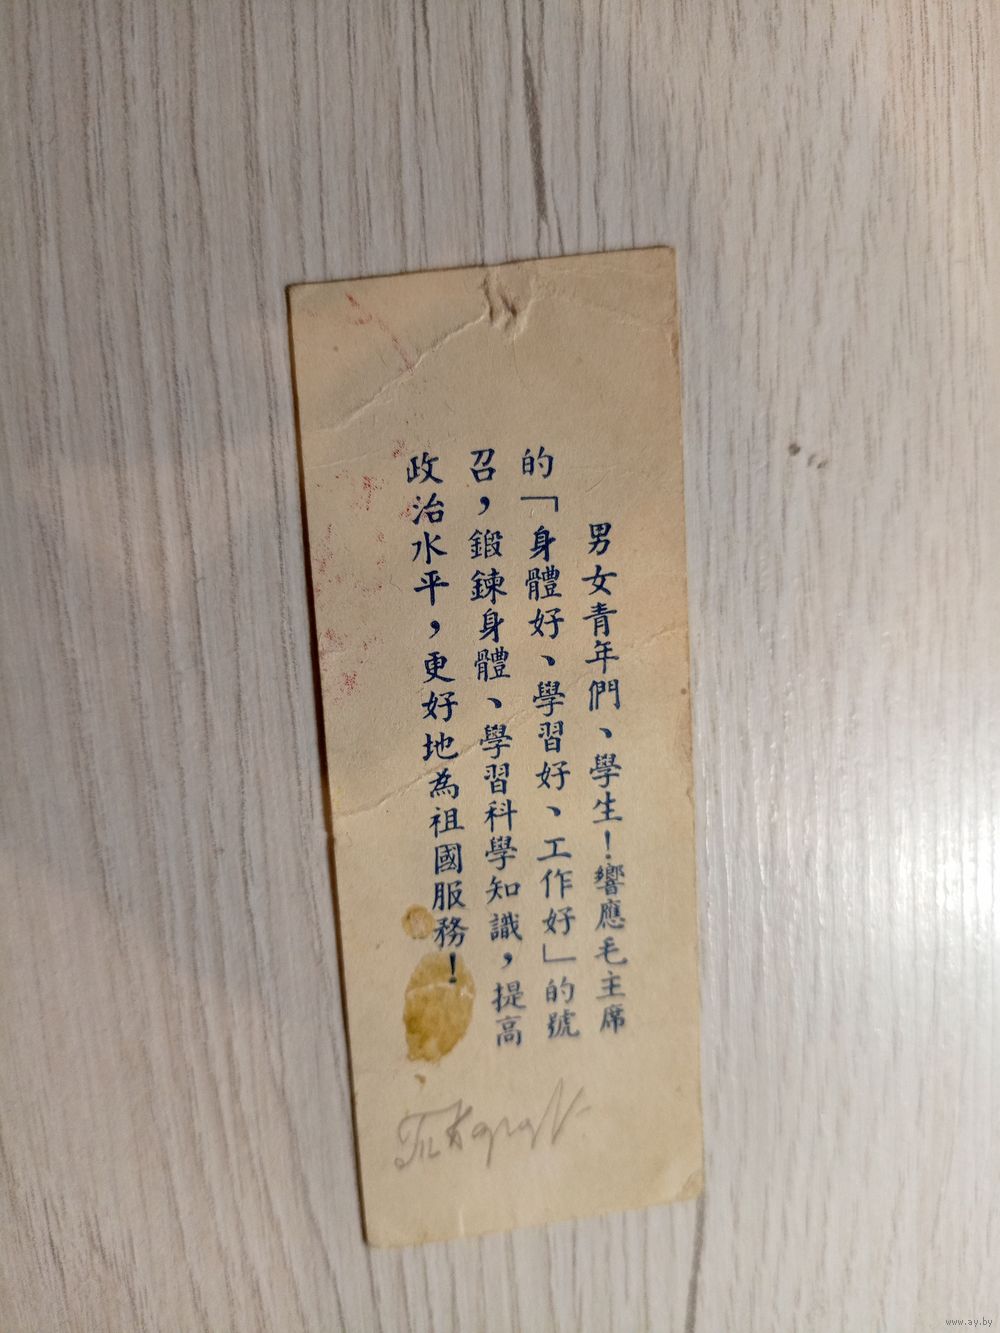 男女青年們、學生！響應毛主席
的「身體好、學習好、工作好」的號
召，鍛鍊身體、學習科學知識，提高
政治水平，更好地為祖國服務！
www.ay.by